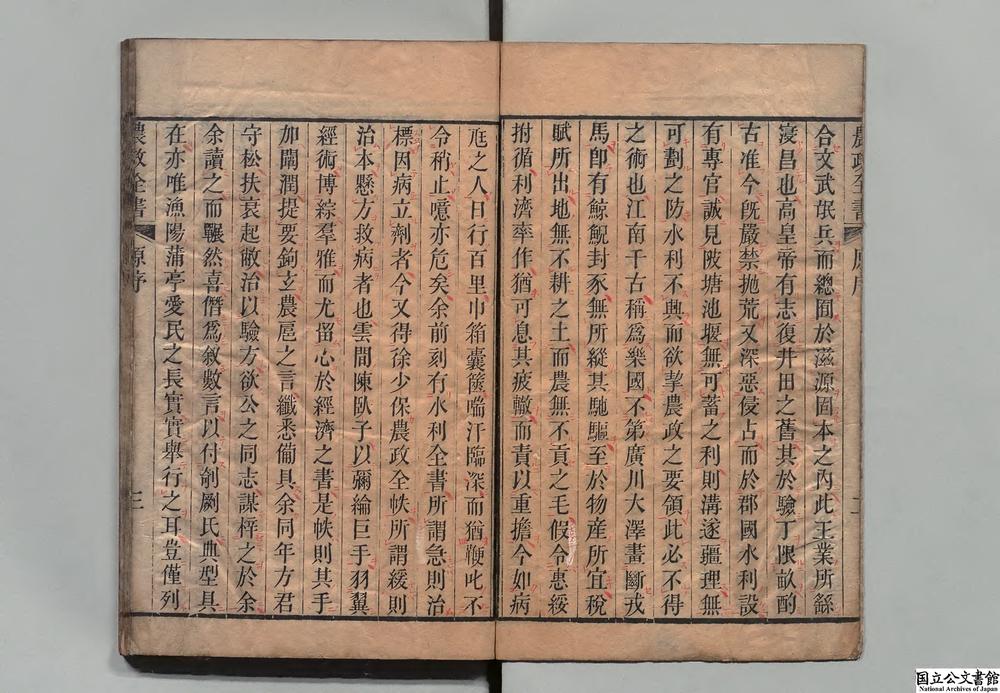 合文武氓兵而總囿於滋源固本之內此王業所繇
寖昌也高皇帝有志復井田之舊其於驗丁限畝酌
古准今旣嚴禁拋荒又深惡侵占而於郡國水利設
有專官誠見陂塘池堰無可蓄之利則溝遂疆理無
可劃之防水利不興而欲挈農政之要領此必不得
之術也江南千古稱爲樂國不第廣川大澤畫斷戎
馬卽有鯨鯢封豕無所縱其馳驅至於物產所宜稅
賦所出地無不耕之土而農無不貢之毛假令惠綏
拊循利濟率作猶可息其疲轍而責以重擔今如病
尩之人日行百里巾箱囊篋喘汗臨深而猶鞭叱不
令稍止噫亦危矣余前刻有水利全書所謂急則治
標因病立劑者今又得徐少保農政全帙所謂緩則
治本懸方救病者也雲間陳臥子以彌綸巨手羽翼
經術博綜羣雅而尤留心於經濟之書是帙則其手
加閏潤提要鉤玄農扈之言纖悉備具余同年方君
守松扶衰起敝治以驗方欲公之同志謀梓之於余
余讀之而囅然喜僭爲敘數言以付剞劂氏典型具
在亦唯漁陽蒲亭愛民之長實實舉行之耳豈僅列
農政全書 原序 三